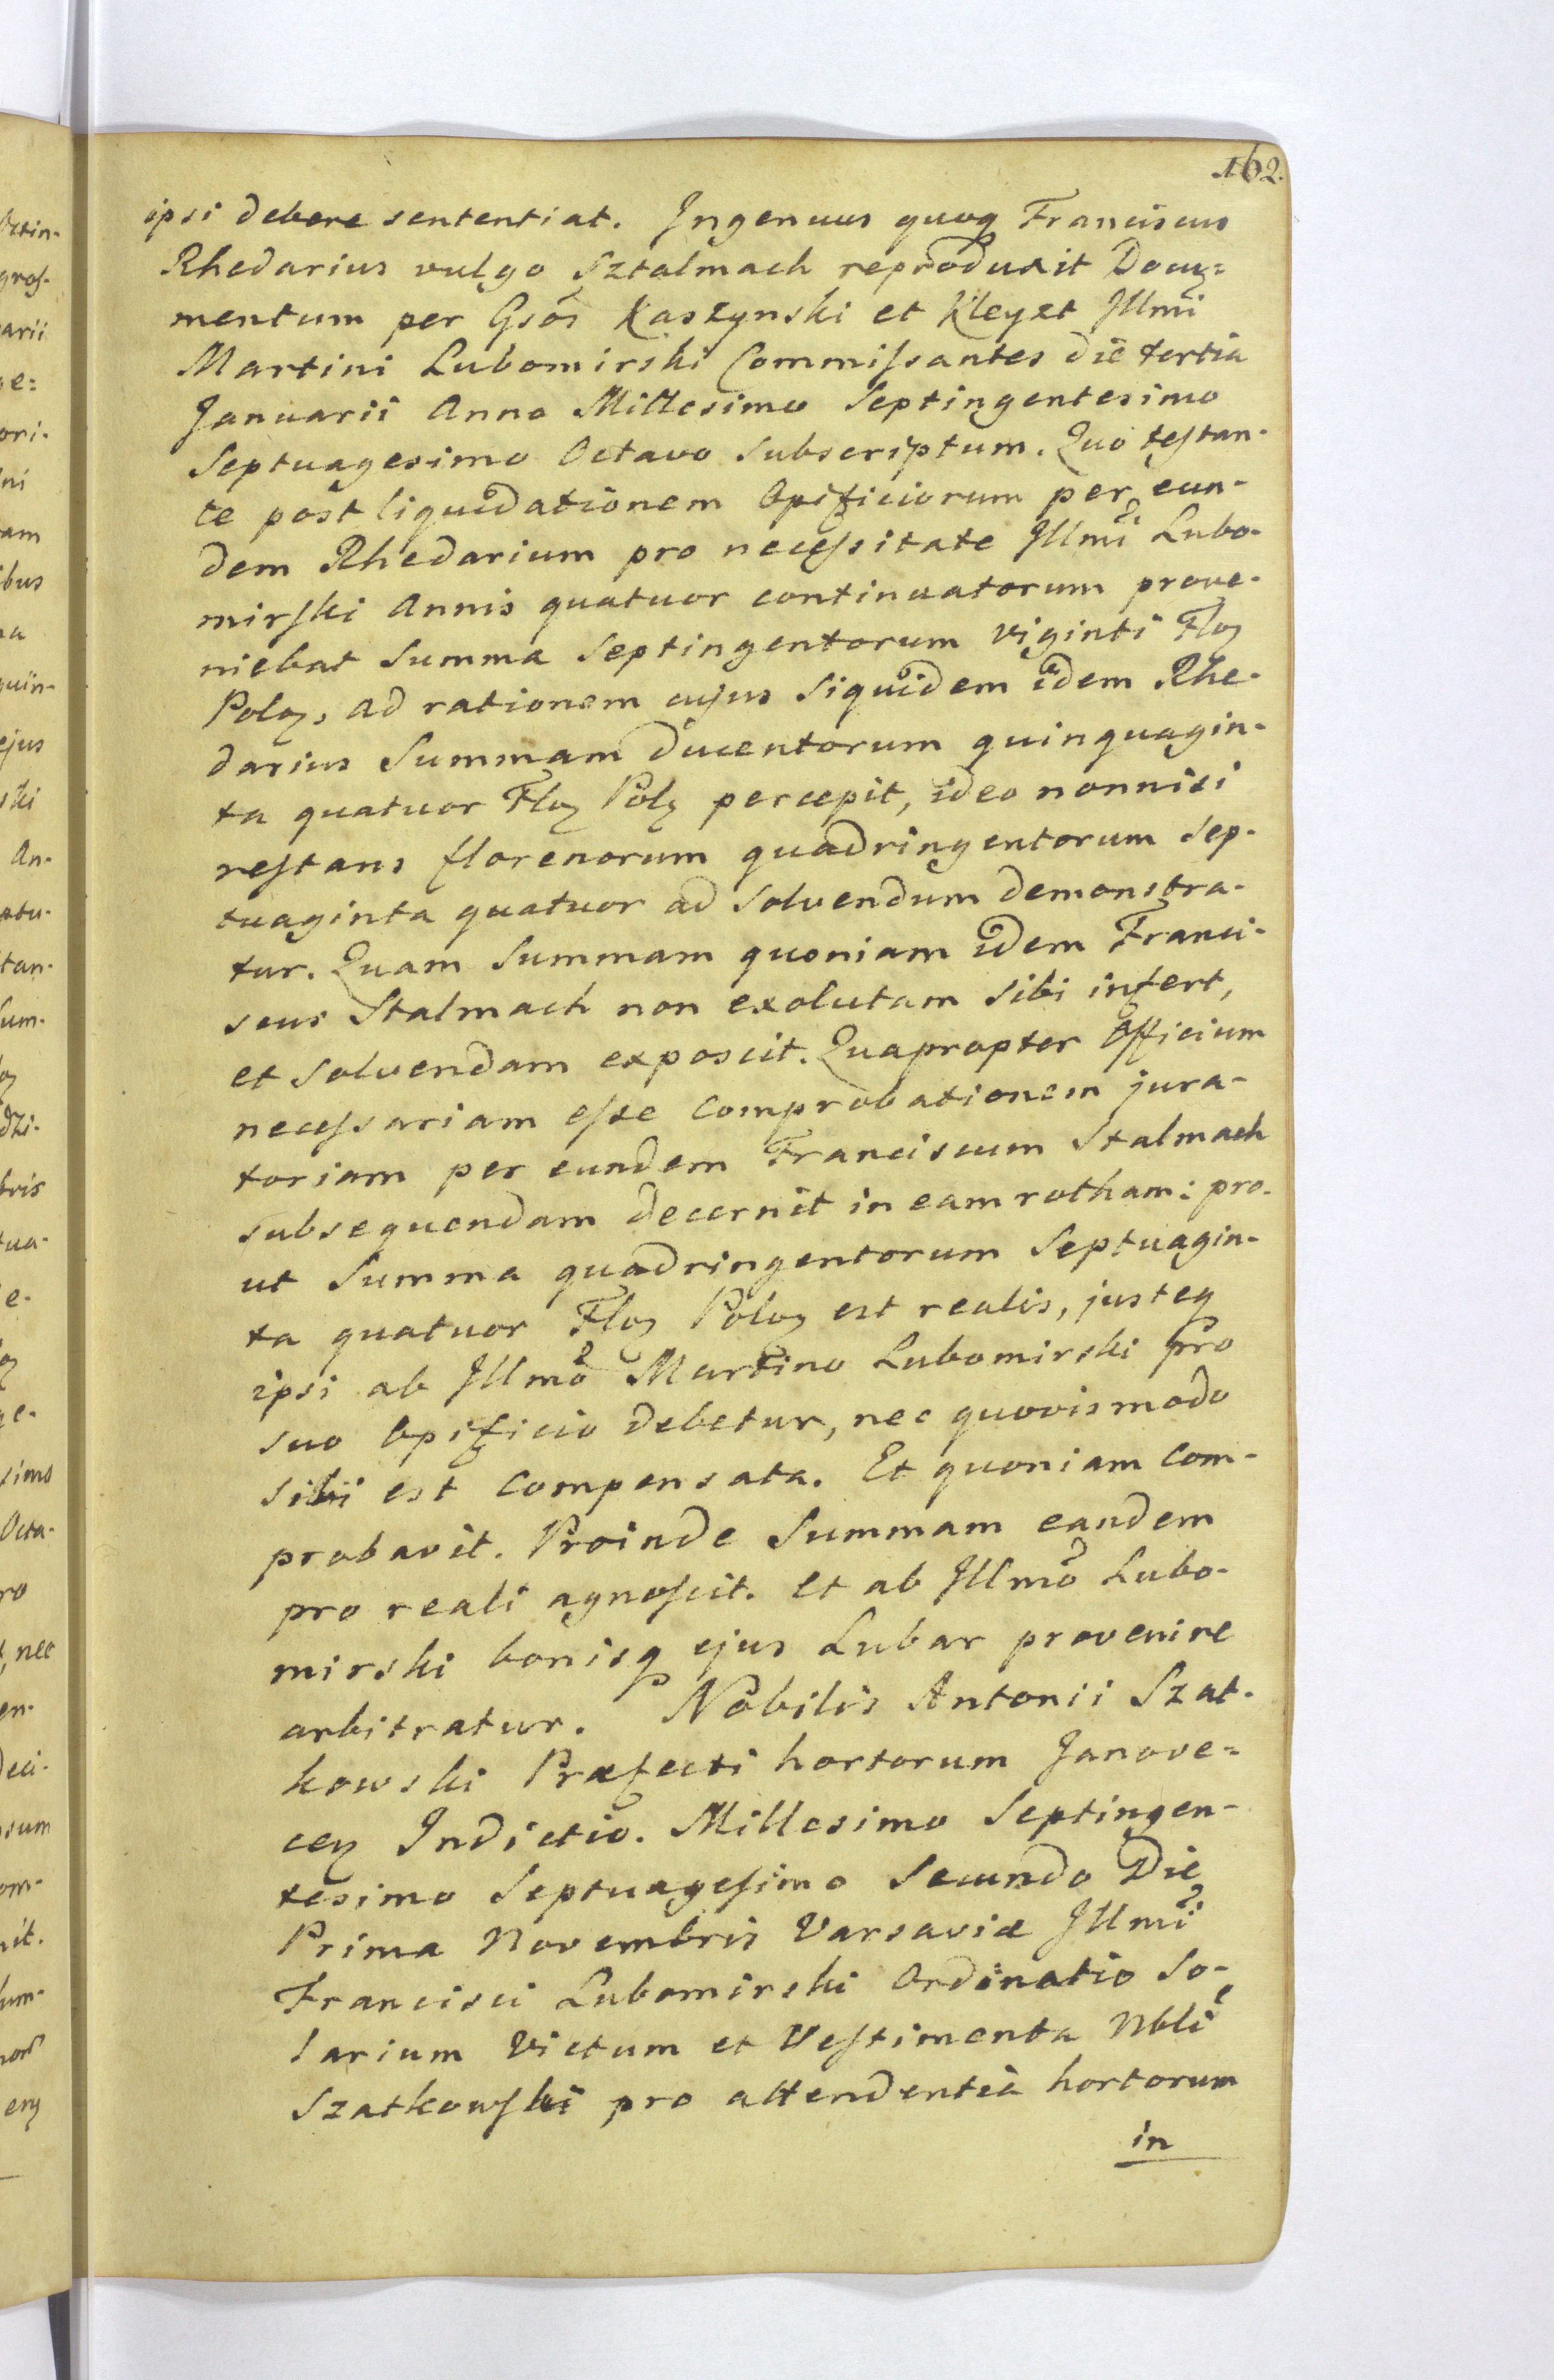 162.
ipsi debere sententiat. Ingenuus quoq Franciscus
Rhedarius vulgo Sztalmach reproduxit Docu=
mentum per Gsos Kaszynski et Kleyzt Illmi
Martini Lubomirski Commissantes die tertia
Januarii Anno Millesimo Septingentesimo
Septuagesimo Octavo Subscriptum. Quo testan-
te post liquidationem Opificiorum per eun-
dem Rhedarium pro necessitate Illmi Lubo-
mirski Annis quatuor continuatorum prove-
niebat Summa Septingentorum viginti Floz
Poloz, ad rationem cujus Siquidem idem Rhe-
darius Summam ducentorum quinquagin-
ta quatuor Floz Polz percepit, ideo nonnisi
restans florenorum quadringentorum Sep-
tuaginta quatuor ad Solvendum demonstra-
tur. Quam Summam quoniam idem Franci-
scus Stalmach non exolutam Sibi infert,
et Solvendam exposcit. Quapropter Officium
necessariam esse Comprobationem jura-
toriam per eundem Franciscum Stalmach
subsequendam decernit in eam rotham: pro-
ut Summa quadringentorum Septuagin-
ta quatuor Floz Poloz est realis, justeq
ipsi ab Illmo Martino Lubomirski pro
suo Opificio debetur, nec quovismodo
sibi est Compensata. Et quoniam Com-
probavit. Proinde Summam eandem
pro reali agnoscit. et ab Illmo Lubo-
mirski bonisq ejus Lubar provenire
arbitratur. Nobilis Antonii Szat-
kowski Præfecti hortorum Janove=
cen Indictio. Millesimo Septingen-
tesimo Septuagesimo Secundo Die
Prima Novembris Varsaviæ Illmi
Francisci Lubomirski Ordinatio So-
larium Victum et Vestimenta Nbli
Szatkowski pro attendentia hortorum
in